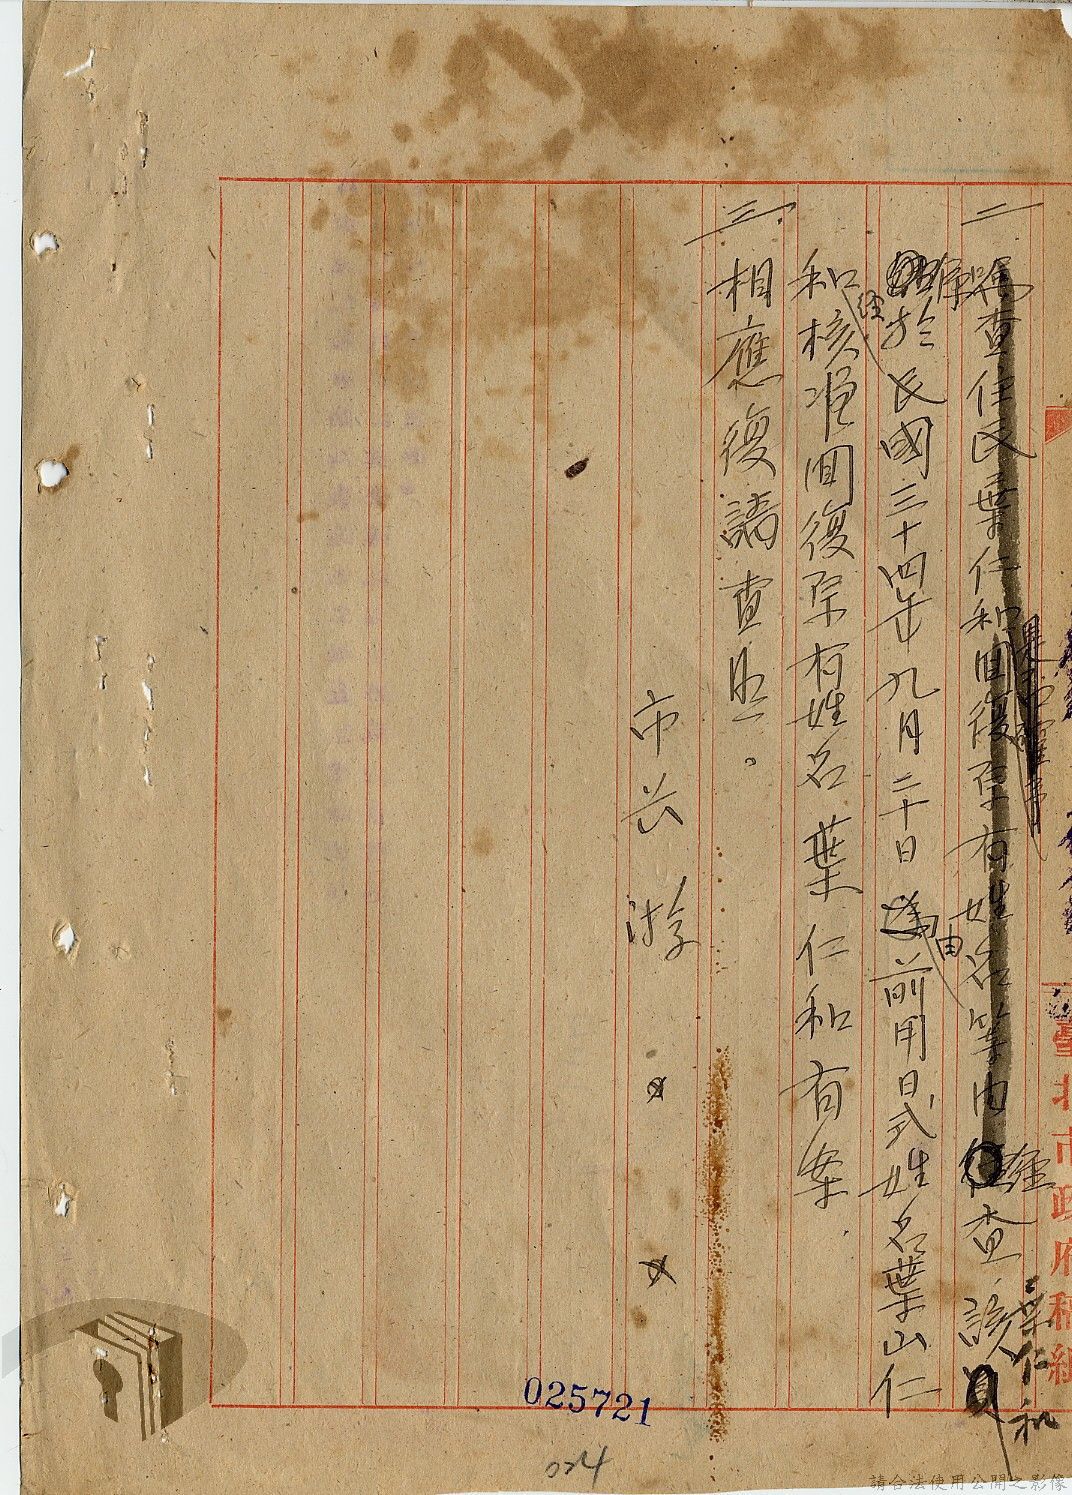 二
查住民葉仁和回復原有姓名等由經查該葉仁和
於民國三十四年九月二十日由前用日式姓名葉山仁
和經核准回復原有姓名葉仁和有案.
三、相應復請查照。
市長 游
臺北市政府稿紙
025721
024
請合法使用公開之影像